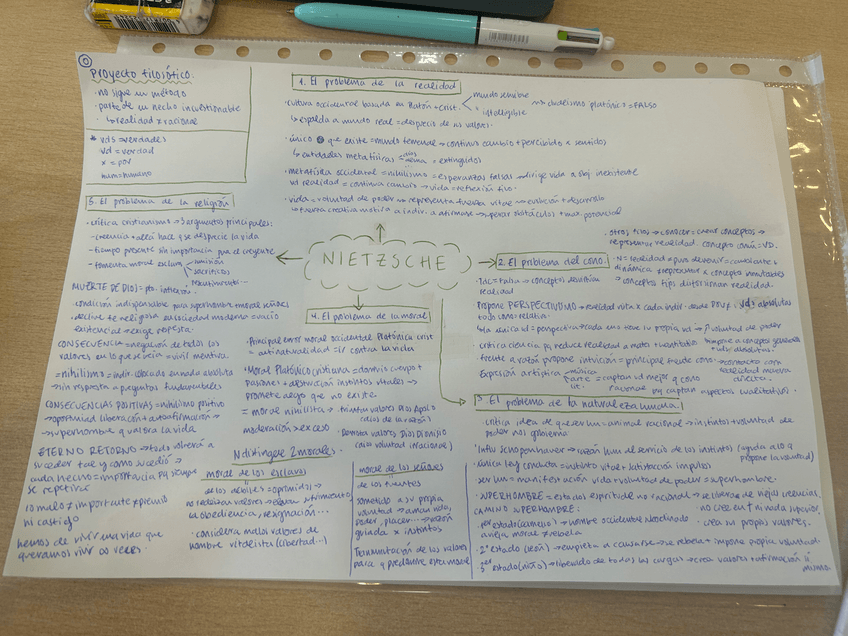 0
Proyecto filosófico:
· no sigue un método
· parte de un hecho incuestionable
↳ realidad x racional
* vds = verdades
vd = verdad
x = por
hum = humano
1. El problema de la realidad
· Cultura occidental basada en Razón + crist. < mundo sensible
" inteligible
→ dualismo platónico = FALSO
↳ espalda a mundo real = desprecio de los valores.
· único que existe = mundo terrenal → continuo cambio + percibido x sentidos
↳ entidades metafísicas = extinguidos
· metafísica occidental = nihilismo = esperanzas falsas → dirige vida a algo inexistente
vd realidad = continuo cambio → vida = reflexión
· vida = voluntad de poder → representa fuerza vital → evolución + desarrollo
↳ fuerza creativa motiva a indiv. a afirmarse → superar obstáculos + max. potencial
NIETZSCHE
5. El problema de la religión
· crítica cristianismo → 3 argumentos principales:
- creencia + allá hace q se desprecie la vida
- tiempo presente sin importancia para el creyente
- fomenta moral esclava → sumisión
→ sacrificios
→ resentimiento
MUERTE DE DIOS =
· condición indispensable para superhombre moral señores
· declive fe religiosa en sociedad moderna → vacío
existencial → exige respuesta.
CONSECUENCIA → negación de todos los
valores en los que se veía → vivir mentira.
= nihilismo = indiv. abocado a nada absoluta
→ sin respuesta a preguntas fundamentales
CONSECUENCIAS POSITIVAS = nihilismo positivo
→ oportunidad liberación + autoafirmación →
→ superhombre q valora la vida.
ETERNO RETORNO → todo volverá a
suceder tal y como sucedió →
cada hecho = importancia pq siempre
se repetirá
lo malo x importante x premio
ni castigo
hemos de vivir una vida que
queramos vivir 00 veces.
4. El problema de la moral
· Principal error moral occidental Platónica crist
= antinaturalidad = ir contra la vida
· Moral Platónico cristiana = dominio cuerpo +
pasiones + destrucción instintos vitales →
promete algo que no existe.
= moral nihilista → triunfan valores Dios Apolo
(dios de la razón)
moderación → exceso
· Derrota valores Dios Dionisio
(rara voluntad irracional)
N distingue 2 morales
moral de los esclavos
de los débiles = oprimidos →
no realizan valores → eligen sufrimiento
la obediencia, resignación...
· considera malos valores de
hombre vitalista (libertad...)
moral de los señores
de los fuertes
sometido x su propia
voluntad → aman vida,
poder, placer... → razón
guiada x instintos
Transmutación de los valores
para q predomine esta moral
2. El problema del cono.
· otros filos → conocer = crear conceptos →
representar realidad. concepto común = VD.
· N = realidad x puro devenir = cambiante +
dinámica → representar x conceptos inmutables
→ conceptos filos distorsionan realidad.
realidad
Propone PERSPECTIVISMO → realidad vista x cada indiv. desde POV → vds absolutas
todo cono relativo.
↳ la única vd = perspectiva → cada uno tiene su propia vd → voluntad de poder
· critica ciencia pq reduce realidad a mates + cuantitativo → impone a conceptos generales
+ vds absolutas
· frente a razón propone intuición = principal fuente cono → contacto con
realidad nueva
directa.
Expresión artística → música
→ arte
→ lit.
= captan vd mejor q cono
racional pq captan aspectos cualitativos.
3. El problema de la naturaleza humana.
· critica idea de que ser hum = animal racional → instintos + voluntad de
poder nos gobierna
· Influ Schopenhauer → razón hum al servicio de los instintos (ayuda a lo q
propone la voluntad)
· única ley conducta = instinto vital + satisfacción impulsos
· ser hum = manifestación vida + voluntad de poder → superhombre.
· SUPERHOMBRE = estado espiritual no racional → se libera de viejas creencias.
no cree en † ni nada superior.
crea sus propios valores.
CAMINO SUPERHOMBRE:
1er estado (camello) → hombre occidente adoctrinado
a vieja moral x rebela
2º estado (león) → empieza a cansarse → se rebela + impone propia voluntad
3er estado (niño) → liberado de todas las cargas → crea valores + afirmación sí
misma